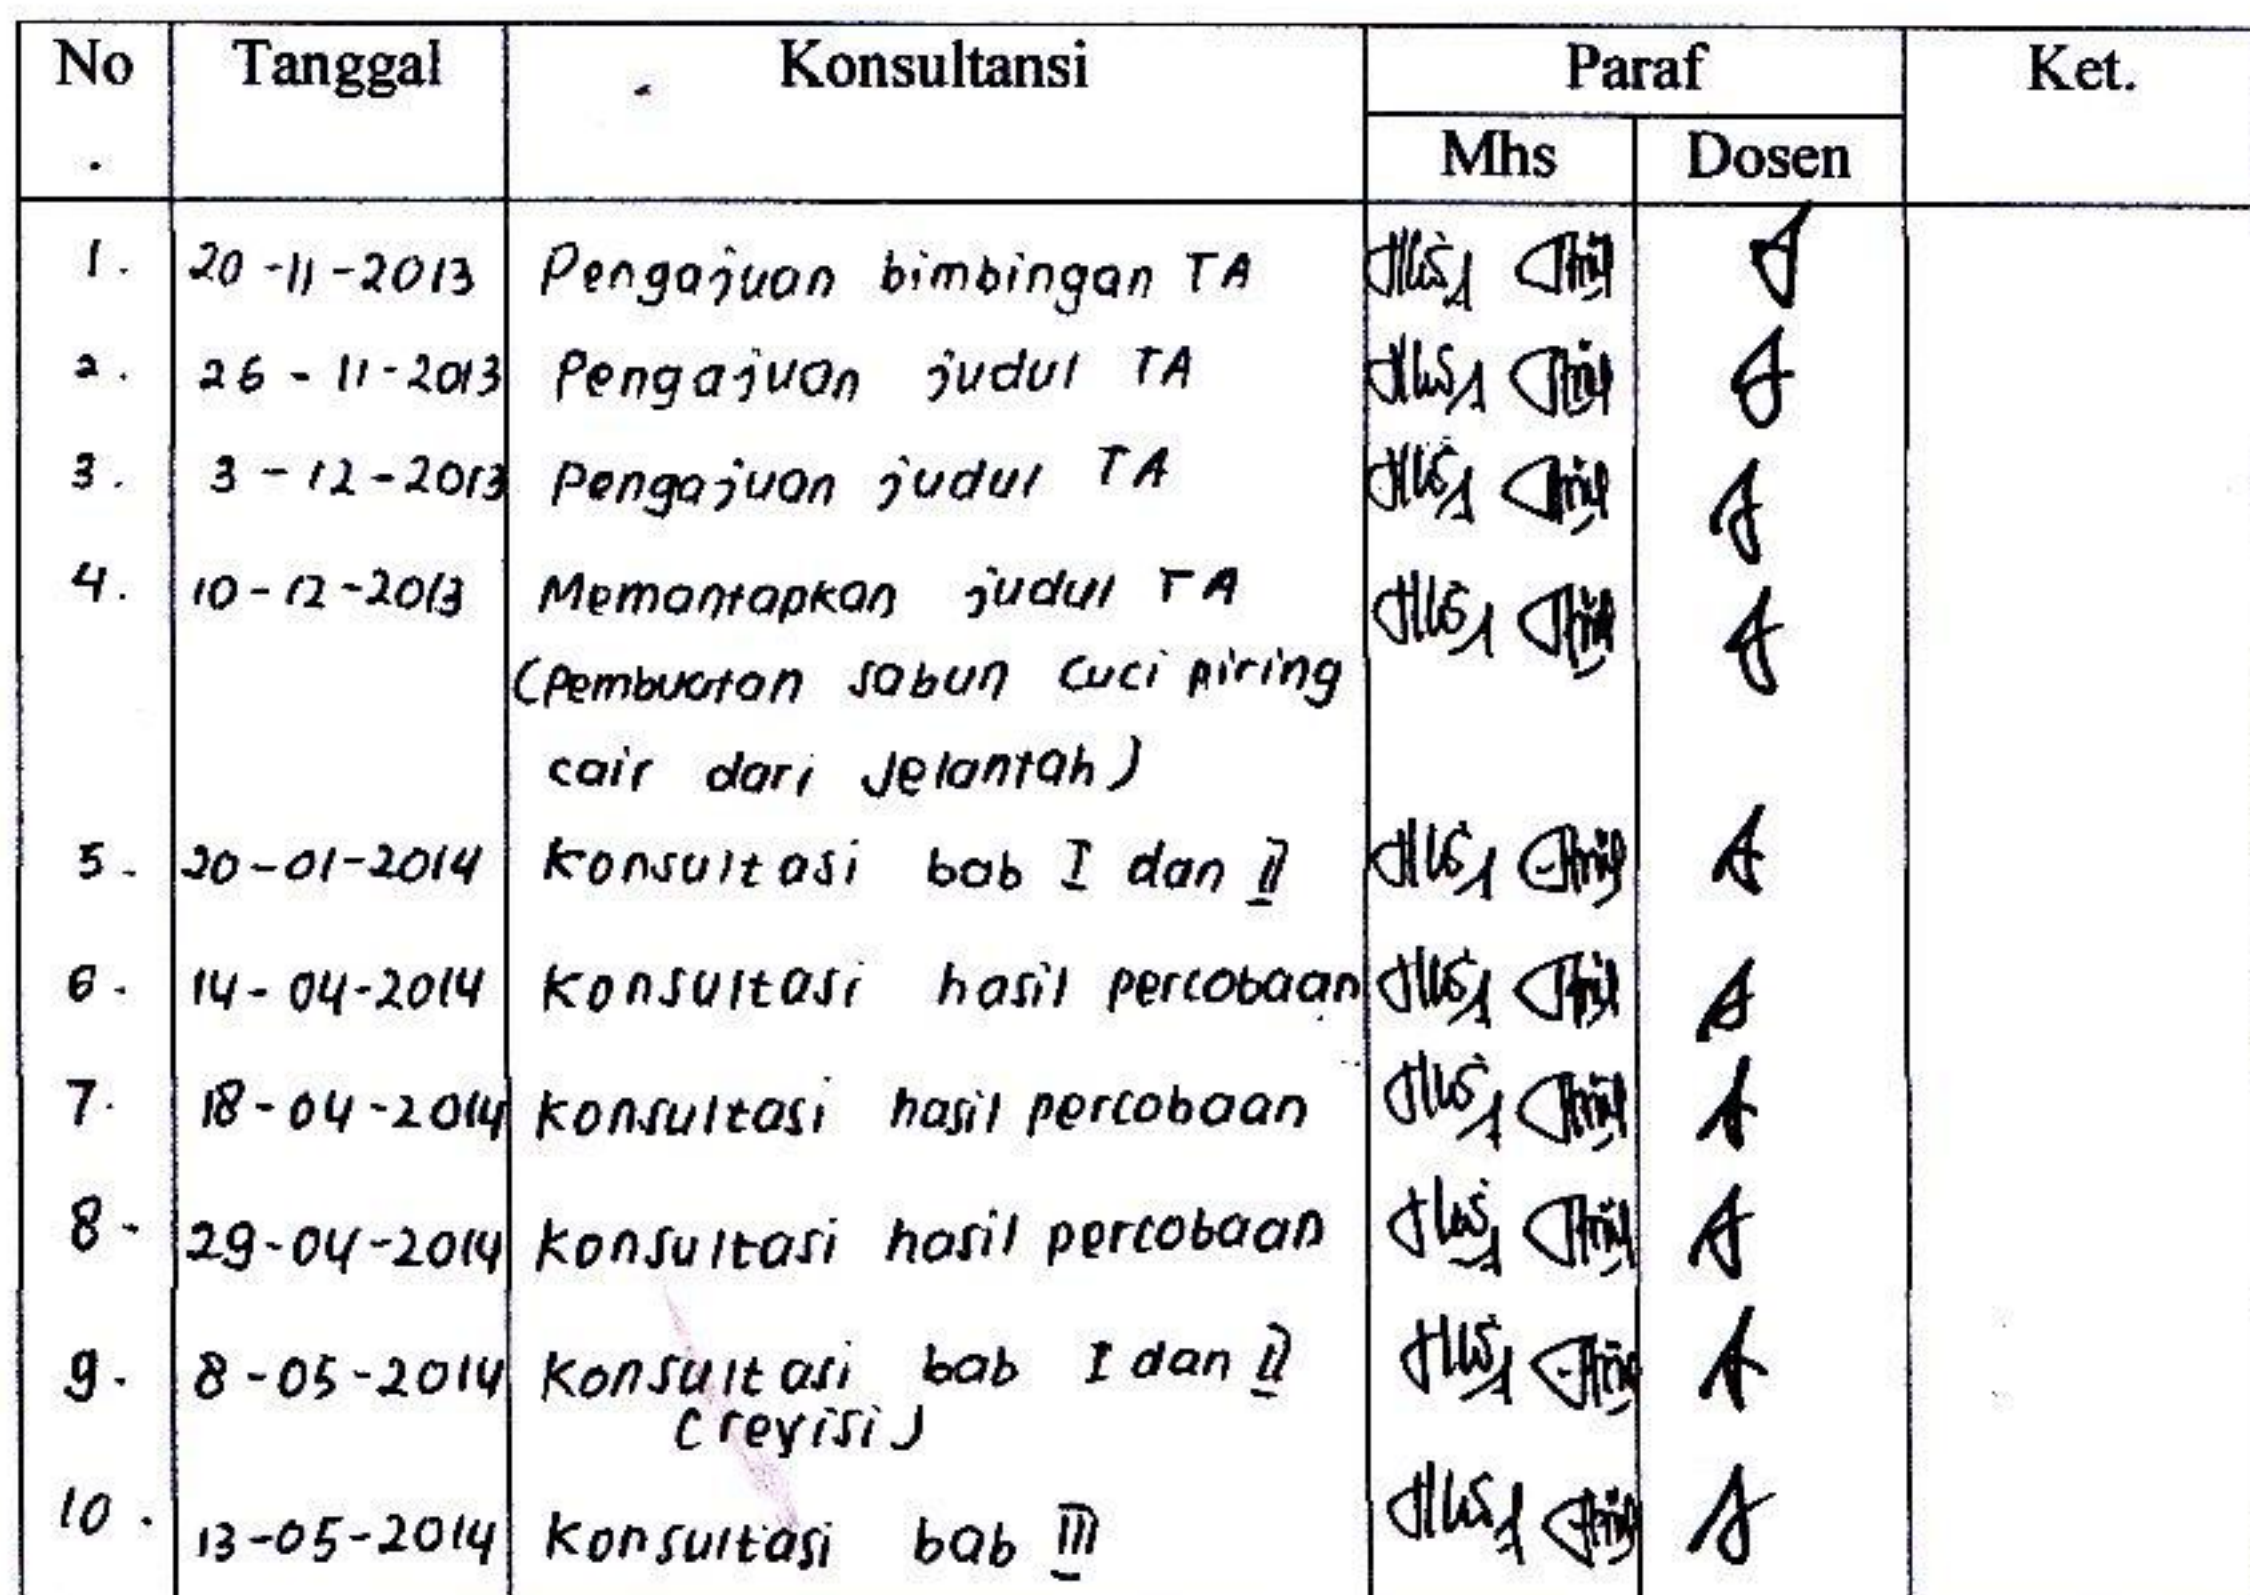 No Tanggal Konsultansi Paraf Ket.
. Mhs Dosen
1. 20-11-2013 Pengajuan bimbingan TA
2. 26-11-2013 Pengajuan judul TA
3. 3-12-2013 Pengajuan judul TA
4. 10-12-2013 Memantapkan judul TA
(Pembuatan sabun cuci piring
cair dari Jelantah)
5. 20-01-2014 Konsultasi bab I dan II
6. 14-04-2014 Konsultasi hasil percobaan
7. 18-04-2014 Konsultasi hasil percobaan
8. 29-04-2014 Konsultasi hasil percobaan
9. 8-05-2014 Konsultasi bab I dan II
(revisi)
10. 13-05-2014 Konsultasi bab III